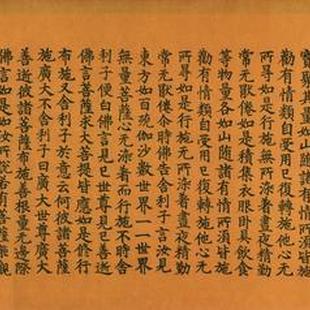 寶聚其量如山隨諸有情所須皆施
勸有情類自受用已復轉施他心无
所尋如是行施無所染著晝夜精勤
常无猒倦如是積集衣服卧具飲食
等物量各如山隨諸有情所須皆施
勸有情類自受用已復轉施他心无
所尋如是行施无所染著晝夜精勤
常无猒倦尒時佛告舍利子言汝見
東方如百殑伽沙數世界一一世界
無量菩薩心无染著而行施不時舍
利子便白佛言見已世尊見已善逝
佛言菩薩求大菩提皆應如是修行
布施又舍利子於意云何彼諸菩薩
施廣大不舍利子曰廣大世尊廣大
善逝彼諸菩薩布施善根量无邊際
佛言如是如汝所說若有菩薩樂觀